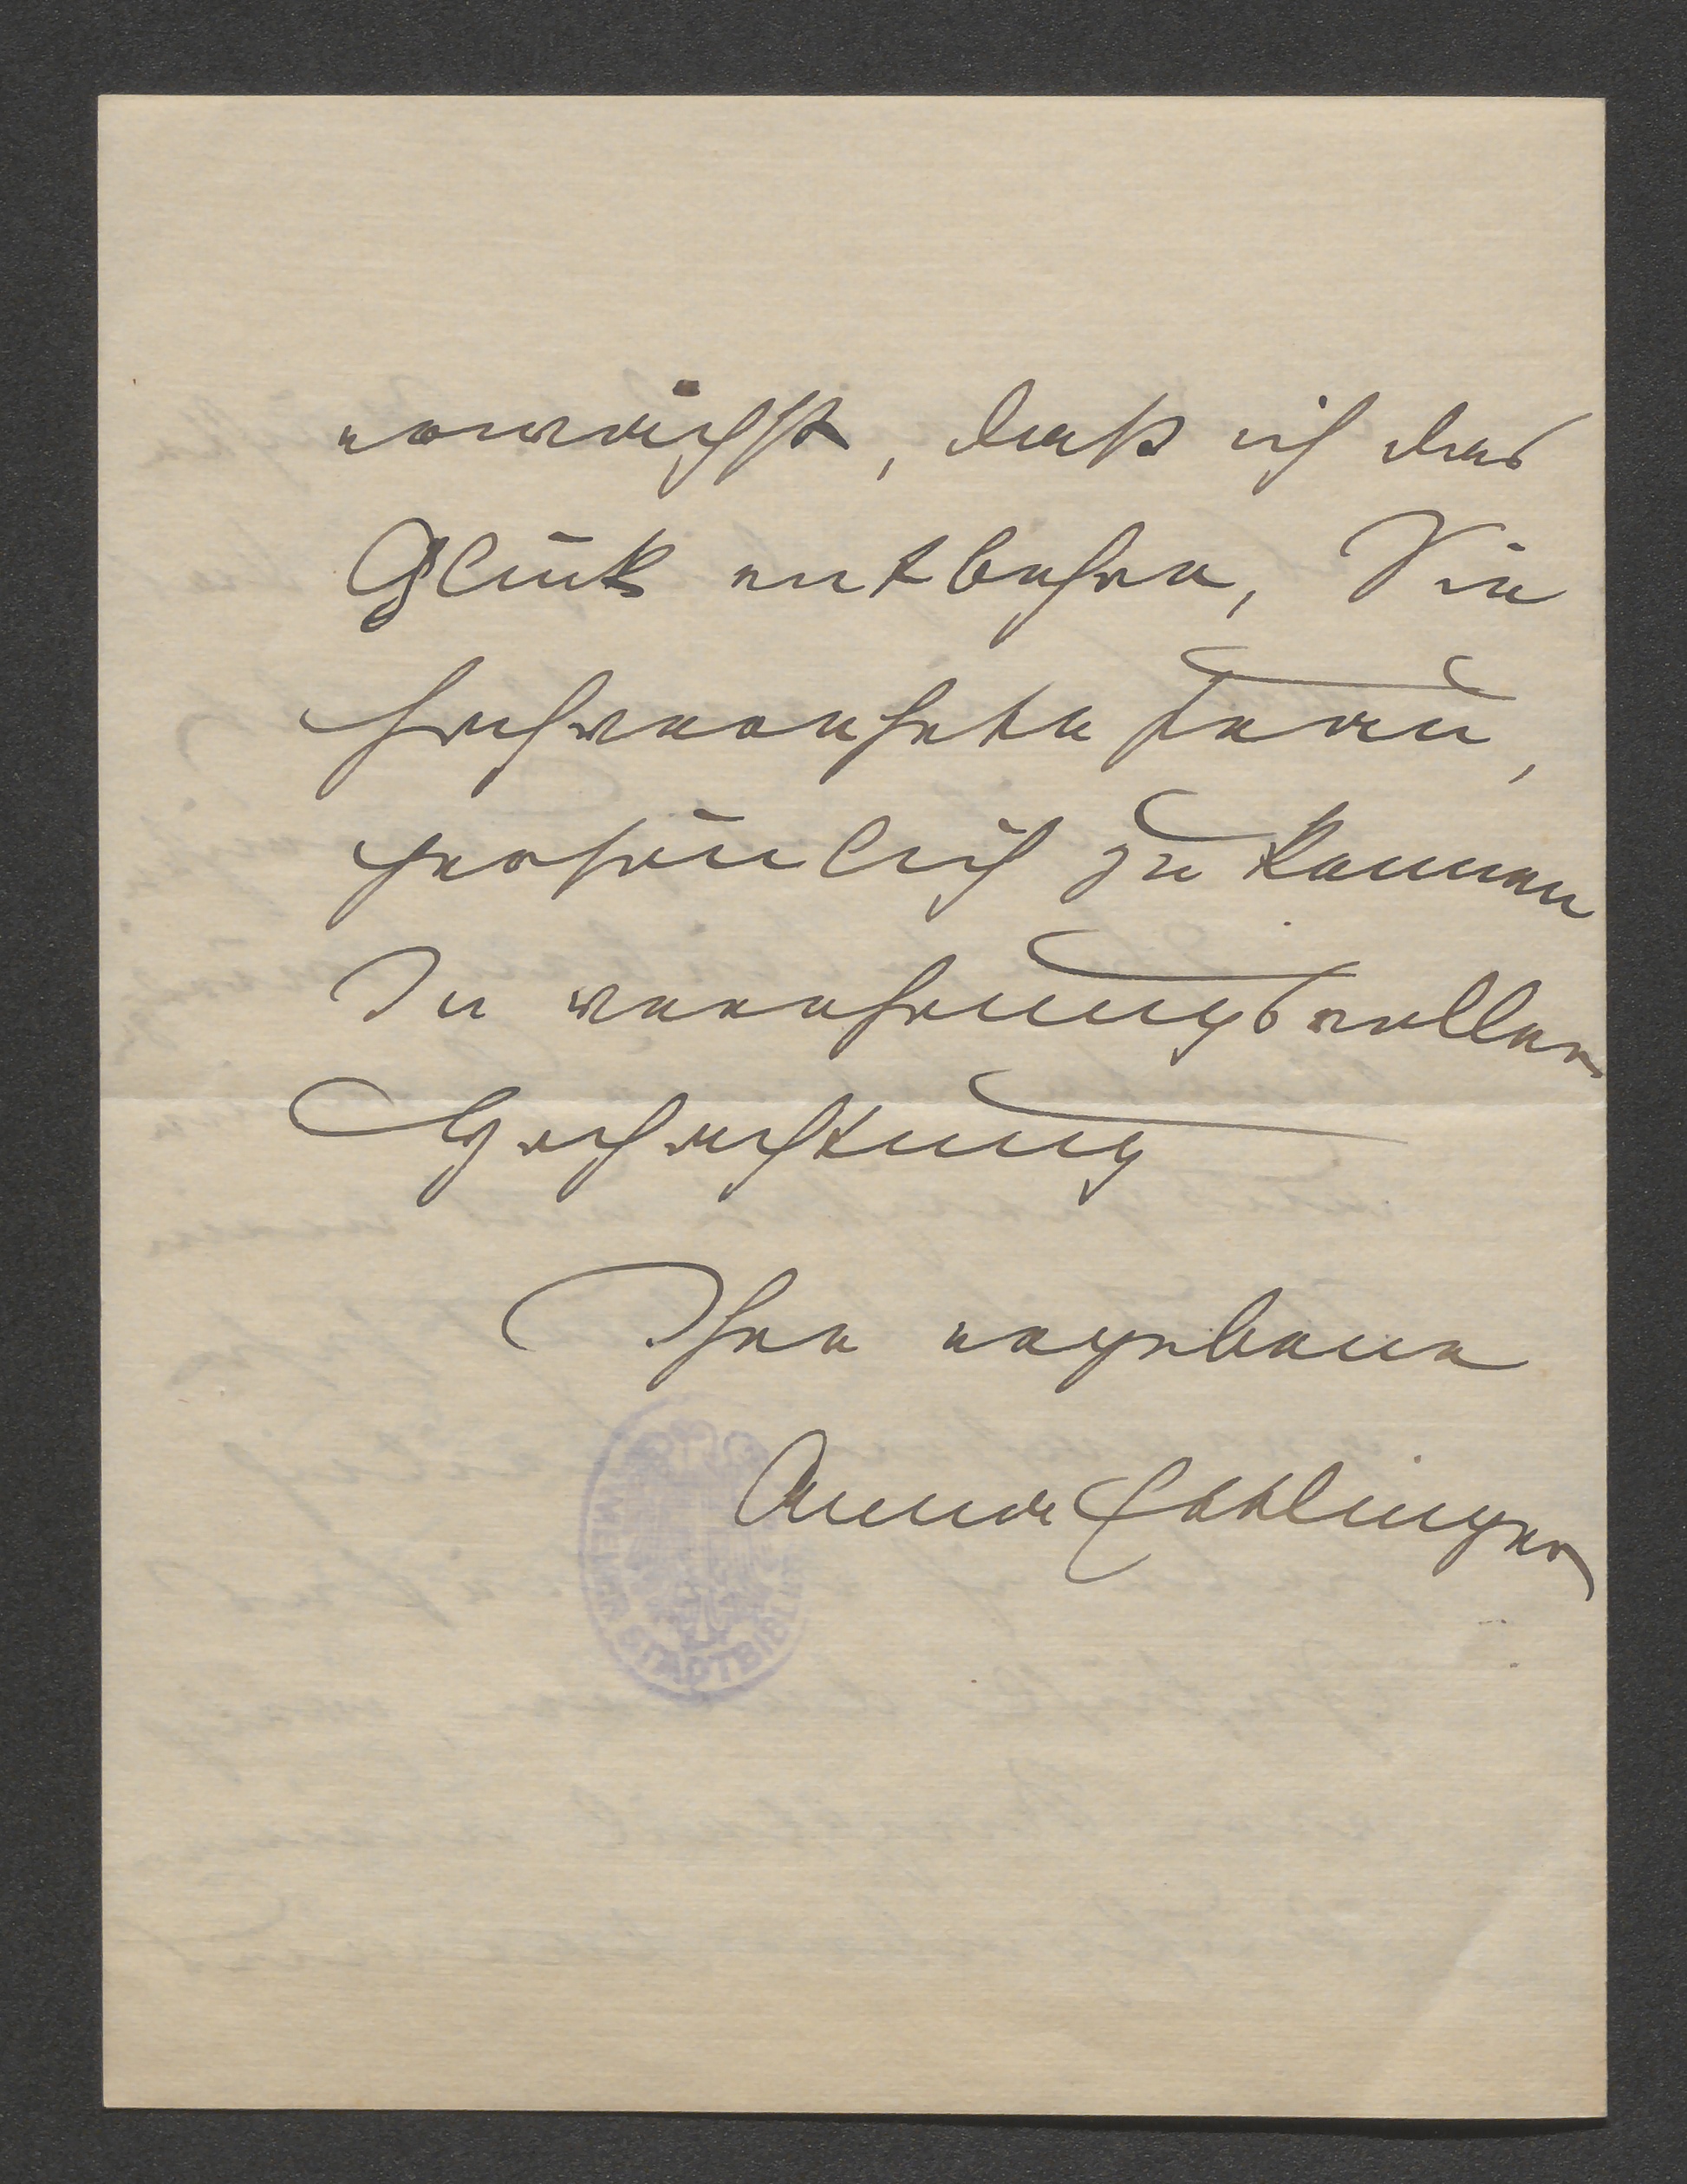 erwächst, daß ich das
Glück entbehre, Sie
hochverehrte Frau,
persönlich zu kennen
In verehrungsvoller
Hochachtung
Ihre ergebene
Anna Ettlinger
WIENER STADTBIBL